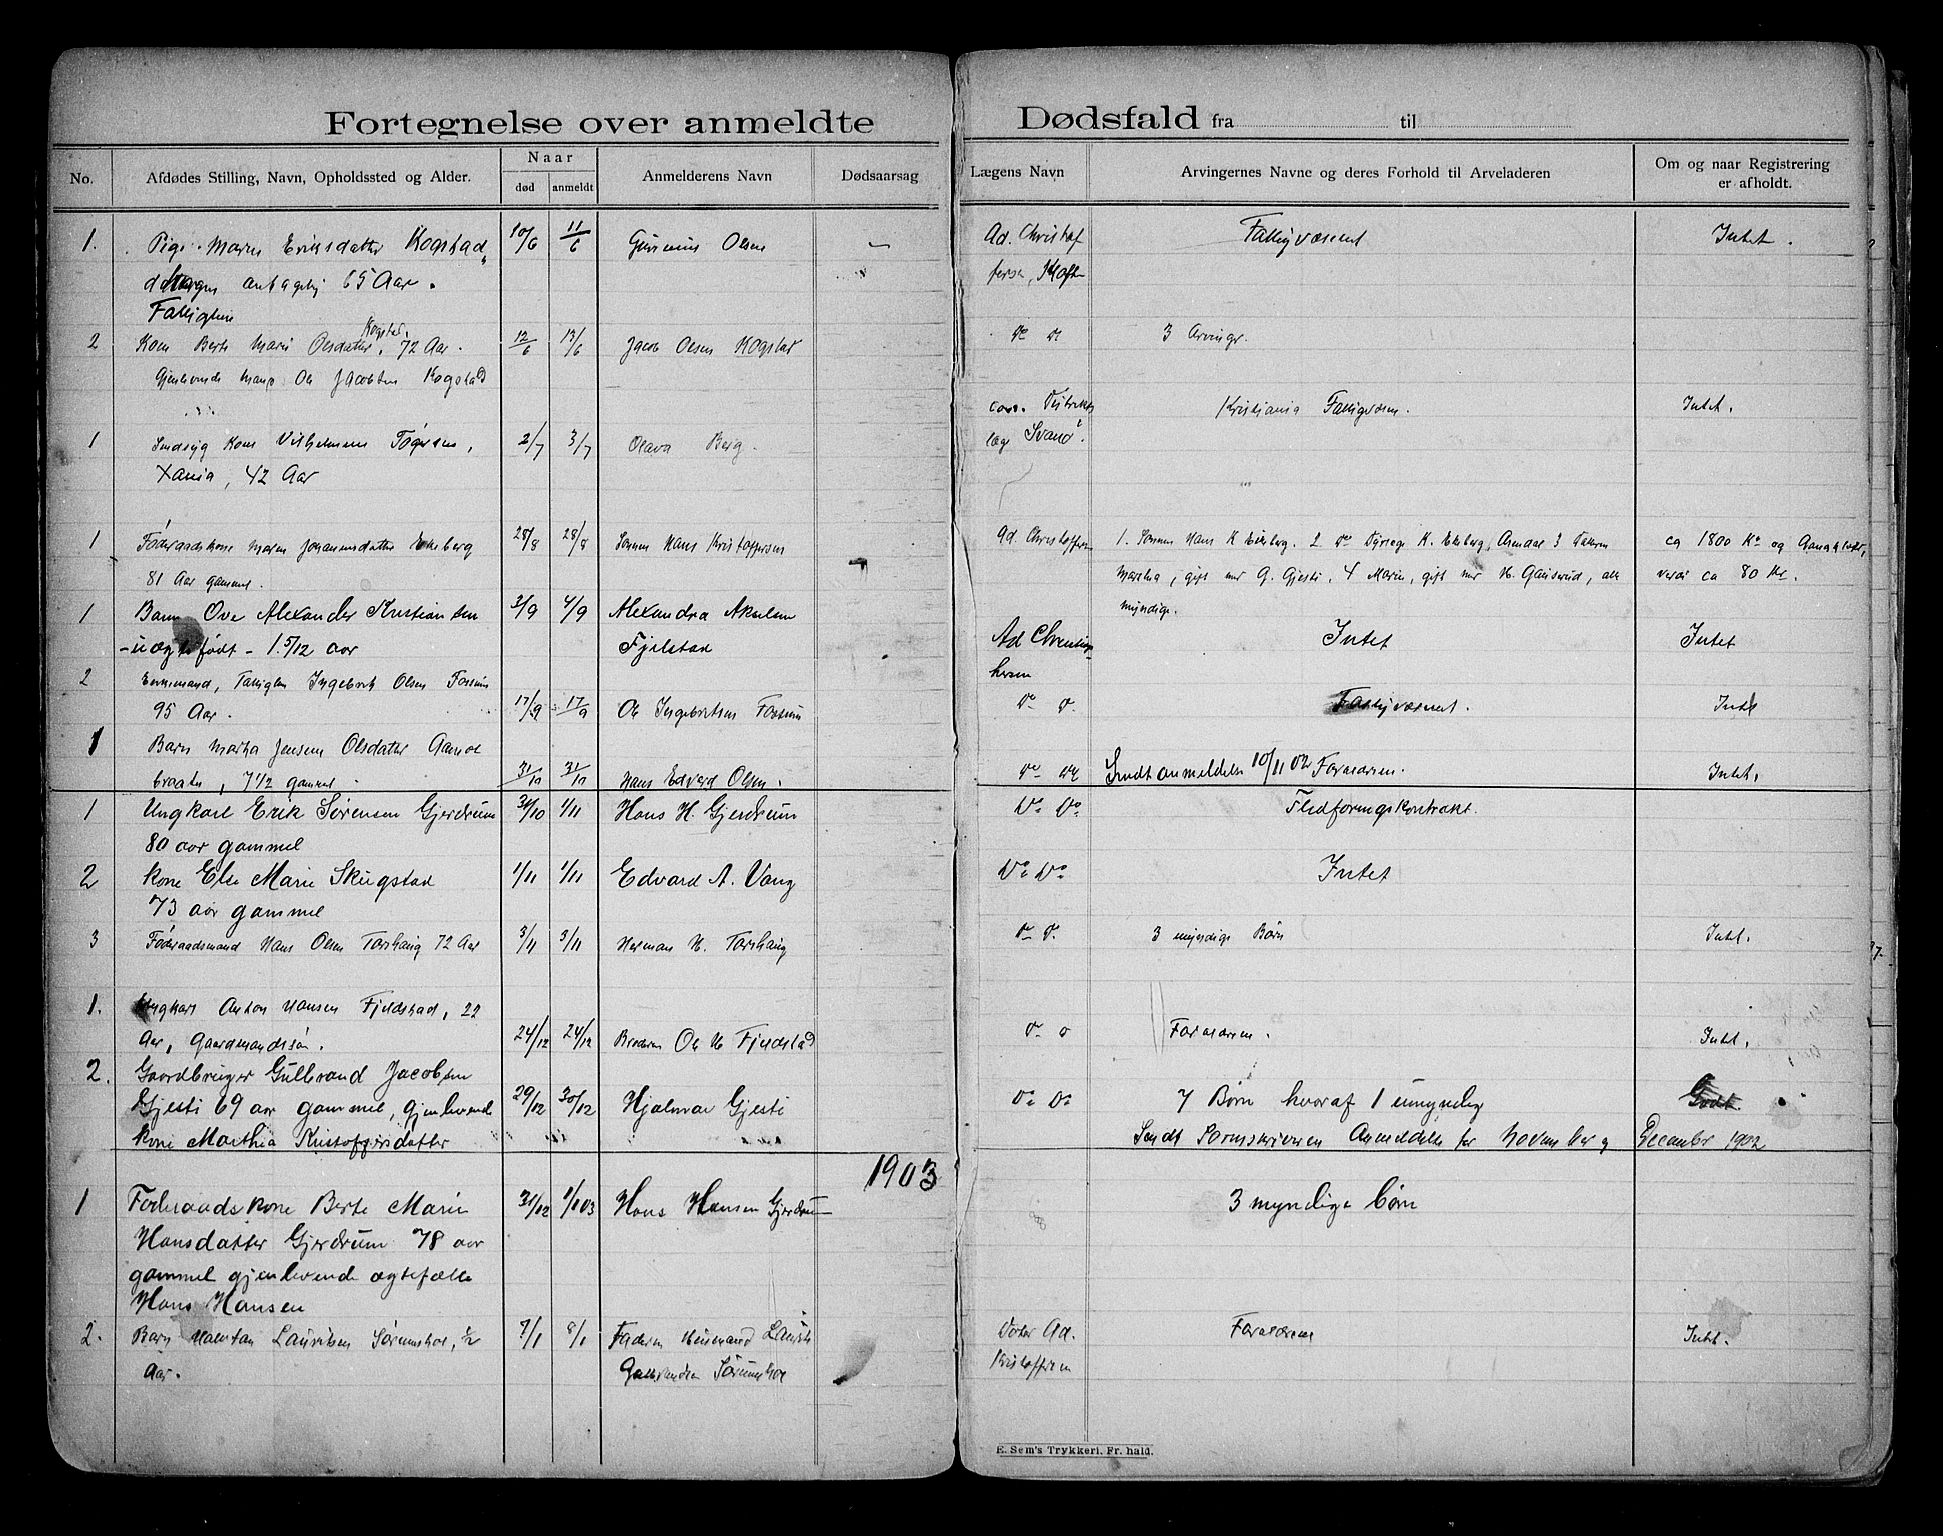 Fortegnelse over anmeldte Dødsfald fra til
No. Afdødes Stilling, Navn, Opholdssted og Alder. Naar død anmeldt Anmelderens Navn Dødsaarsag Lægens Navn Arvingernes Navne og deres Forhold til Arveladeren Om og naar Registrering er afholdt.
1. Pige Maren Eriksdatter Kogstad 10/6 11/6 Gunerius Olsen — Ad. Christof Fattigvæsenet Intet.
antagelig 65 Aar. fersen,
Fattiglem
2 Kone Berte Marie Olsdatter, Kogstad, 72 Aar. 12/6 13/6 Jacob Olsen Kogstad do do 3 Arvinger.
Gjenlevende Mand Ole Jacobsen Kogstad
Distrikts Kristiania Fattigvæsen. Intet.
1 Sindssyg Kone Vilhelmine 2/7 3/7 Olava Berg. læge
Xania, 42 Aar
1 Føderaadskone Maren Johannesdatter Ekeberg 28/8 28/8 Sønnen Hans Kristoffersen Ad. Christoffersen 1. Sønnen Hans K Ekeberg. 2 do K. Ekeberg, 3 Datteren ca 1800 Kr og
81 Aar gammel. Marthea, gift med G. Gjesti, 4 Marie, gift med H. alle ca 80 Kr.
myndige.
1 Barn Ove Alexander Kristiansen 3/9 4/9 Alexandra Akselsen Intet Intet
- uægte født - 1 5/12 aar Fjelstad Ad
2 Enkemand, Fattiglem Ingebrik Olsen Fossum
95 Aar. 17/9 17/9 Ole Ingebritsen Fossum do do. Fattigvæsenet. Intet
1 Barn Martha Jensen Olsdatter
7 1/2 gammel. 31/10 31/10 Hans Edvard Olsen. do do Sendt anmeldelse 10/11 02 Forældrene. Intet.
1 Ungkarl Erik Sørensen Gjerdrum 30/10 1/11 Hans H. Gjerdrum Do Do Fledføringskontrakt.
80 aar gammel
2 Kone Else Marie Skugstad 1/11 1/11 Edvard A. Vang Do Do Intet
73 aar gammel
3 Føderaadsmand Hans Olsen Torshaug 72 Aar 3/11 3/11 Herman H. Torshaug do do. 3 myndige Børn Intet.
1. Ungkarl Anton Hansen Fjeldstad, 22
Aar, Gaardmandssøn. 24/12 24/12 Broderen Ole H Fjeldstad do do Forældrene. Intet.
2. Gaardbruger Gulbrand Jacobsen
Gjesti 69 aar gammel, gjenlevende 29/12 30/12 Hjalmar Gjesti do do 7 Børn hvoraf 1 umyndig
Kone Marthea Kristoffersdatter Sendt Sorenskriveren Anmeldelse for November og December 1902
1903
1 Føderaadskone Berte Marie 31/12 1/1 03 Hans Hansen Gjerdrum 3 myndige børn
Hansdatter Gjerdrum 78 aar
gammel gjenlevende ægtefælle
Hans Hansen
2. Barn Lauritsen 1/2 7/1 8/1 Faderen Husmand Laurits Doktor Ad. Forældrene Intet.
Aar. Kristoffersen
E. Sem's Trykkeri, Fr. hald.